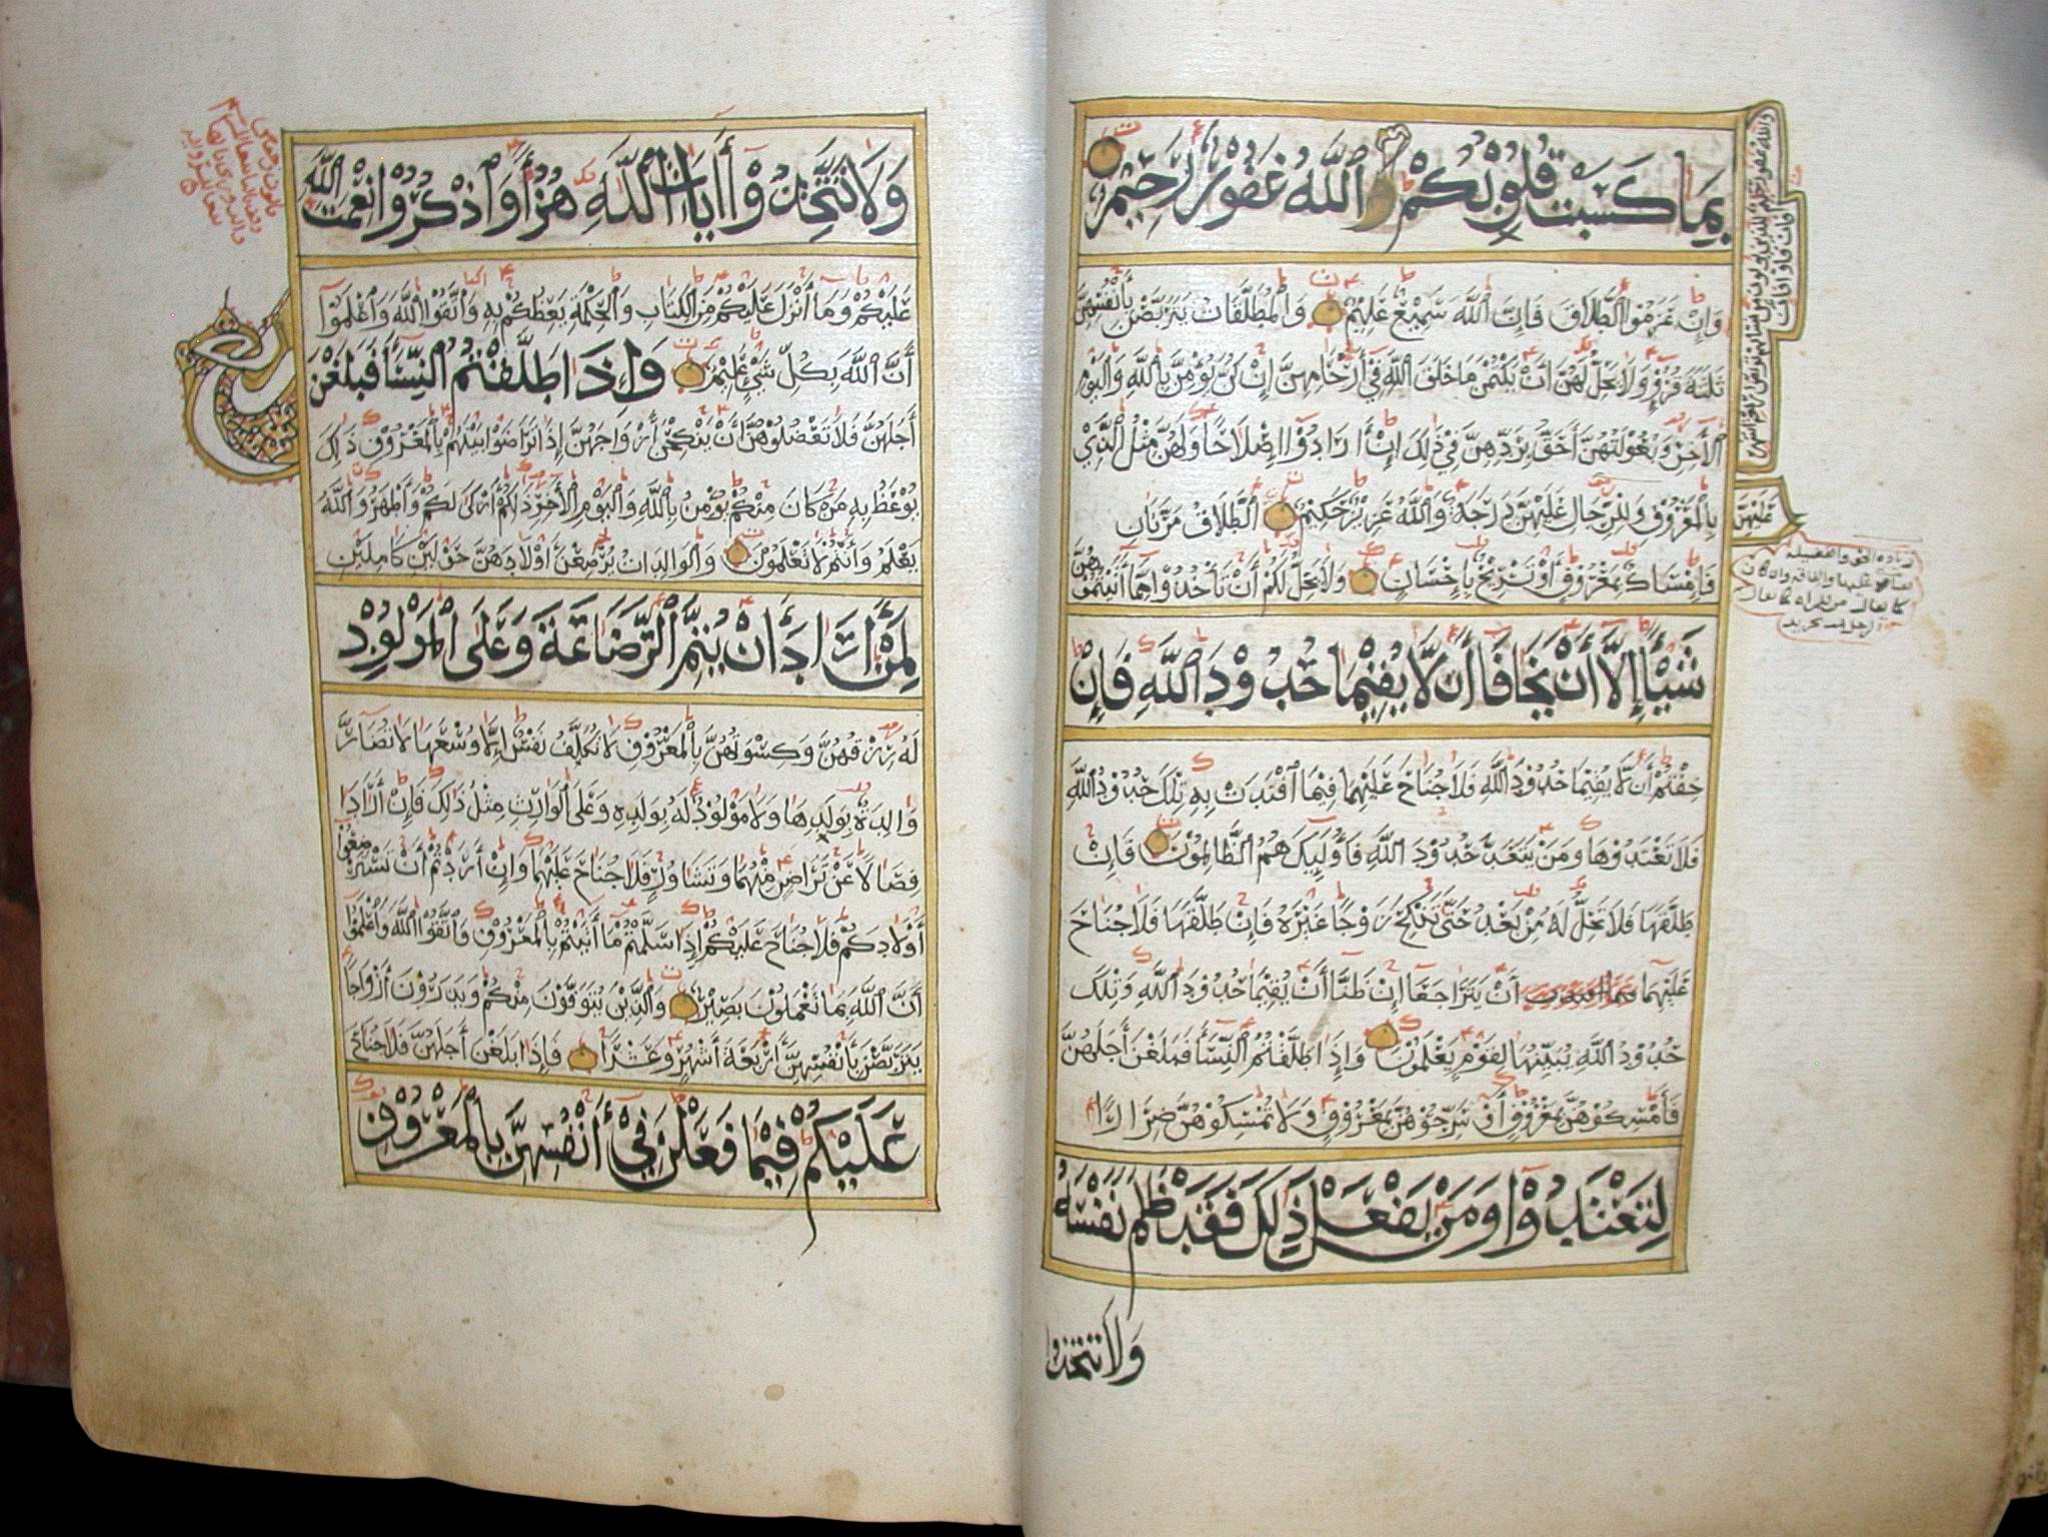 بِمَا كَسَبَتْ قُلُوبُكُمْ وَاللَّهُ غَفُورٌ رَحِيمٌ
وَاللَّهُ غَفُورٌ رَحِيمٌ لِلَّذِينَ يُؤْلُونَ مِنْ نِسَائِهِمْ تَرَبُّصُ أَرْبَعَةِ أَشْهُرٍ
فَإِنْ فَاؤُوا فَإِنَّ
وَإِنْ عَزَمُوا الطَّلَاقَ فَإِنَّ اللَّهَ سَمِيعٌ عَلِيمٌ وَالْمُطَلَّقَاتُ يَتَرَبَّصْنَ بِأَنْفُسِهِنَّ
ثَلَثَةَ قُرُوءٍ وَلَا يَحِلُّ لَهُنَّ أَنْ يَكْتُمْنَ مَا خَلَقَ اللَّهُ فِي أَرْحَامِهِنَّ إِنْ كُنَّ يُؤْمِنَّ بِاللَّهِ وَالْيَوْمِ
الْأَخِرِ وَبُعُولَتُهُنَّ أَحَقُّ بِرَدِّهِنَّ فِي ذَلِكَ إِنْ أَرَادُوا إِصْلَاحًا وَلَهُنَّ مِثْلُ الَّذِي
عَلَيْهِنَّ
بِالْمَعْرُوفِ وَلِلرِّجَالِ عَلَيْهِنَّ دَرَجَةٌ وَاللَّهُ عَزِيزٌ حَكِيمٌ الطَّلَاقُ مَرَّتَانِ
فَإِمْسَاكٌ بِمَعْرُوفٍ أَوْ تَسْرِيحٌ بِإِحْسَانٍ وَلَا يَحِلُّ لَكُمْ أَنْ تَأْخُذُوا مِمَّا أَتَيْتُمُوهُنَّ
شَيْئًا إِلَّا أَنْ يَخَافَا أَنْ لَا يُقِيمَا حُدُودَ اللَّهِ فَإِنْ
خِفْتُمْ أَنْ لَا يُقِيمَا حُدُودَ اللَّهِ فَلَا جُنَاحَ عَلَيْهِمَا فِيمَا افْتَدَتْ بِهِ تِلْكَ حُدُودُ اللَّهِ
فَلَا تَعْتَدُوهَا وَمَنْ يَتَعَدَّ حُدُودَ اللَّهِ فَأُولَئِكَ هُمُ الظَّالِمُونَ فَإِنْ
طَلَّقَهَا فَلَا تَحِلُّ لَهُ مِنْ بَعْدُ حَتَّى تَنْكِحَ زَوْجًا غَيْرَهُ فَإِنْ طَلَّقَهَا فَلَا جُنَاحَ
عَلَيْهِمَا أَنْ يَتَرَاجَعَا إِنْ ظَنَّا أَنْ يُقِيمَا حُدُودَ اللَّهِ وَتِلْكَ
حُدُودُ اللَّهِ يُبَيِّنُهَا لِقَوْمٍ يَعْلَمُونَ وَإِذَا طَلَّقْتُمُ النِّسَاءَ فَبَلَغْنَ أَجَلَهُنَّ
فَأَمْسِكُوهُنَّ بِمَعْرُوفٍ أَوْ سَرِّحُوهُنَّ بِمَعْرُوفٍ وَلَا تُمْسِكُوهُنَّ ضِرَارًا
لِتَعْتَدُوا وَمَنْ يَفْعَلْ ذَلِكَ فَقَدْ ظَلَمَ نَفْسَهُ
وَلَا تَتَّخِذُوا
وَلَا تَتَّخِذُوا أَيَاتِ اللَّهِ هُزُوًا وَاذْكُرُوا نِعْمَتَ اللَّهِ
عَلَيْكُمْ وَمَا أَنْزَلَ عَلَيْكُمْ مِنَ الْكِتَابِ وَالْحِكْمَةِ يَعِظُكُمْ بِهِ وَاتَّقُوا اللَّهَ وَاعْلَمُوا
أَنَّ اللَّهَ بِكُلِّ شَيْءٍ عَلِيمٌ وَإِذَا طَلَّقْتُمُ النِّسَاءَ فَبَلَغْنَ
أَجَلَهُنَّ فَلَا تَعْضُلُوهُنَّ أَنْ يَنْكِحْنَ أَزْوَاجَهُنَّ إِذَا تَرَاضَوْا بَيْنَهُمْ بِالْمَعْرُوفِ ذَلِكَ
يُوعَظُ بِهِ مَنْ كَانَ مِنْكُمْ يُؤْمِنُ بِاللَّهِ وَالْيَوْمِ الْأَخِرِ ذَلِكُمْ أَزْكَى لَكُمْ وَأَطْهَرُ وَاللَّهُ
يَعْلَمُ وَأَنْتُمْ لَا تَعْلَمُونَ وَالْوَالِدَاتُ يُرْضِعْنَ أَوْلَادَهُنَّ حَوْلَيْنِ كَامِلَيْنِ
لِمَنْ أَرَادَ أَنْ يُتِمَّ الرَّضَاعَةَ وَعَلَى الْمَوْلُودِ
لَهُ رِزْقُهُنَّ وَكِسْوَتُهُنَّ بِالْمَعْرُوفِ لَا تُكَلَّفُ نَفْسٌ إِلَّا وُسْعَهَا لَا تُضَارَّ
وَالِدَةٌ بِوَلَدِهَا وَلَا مَوْلُودٌ لَهُ بِوَلَدِهِ وَعَلَى الْوَارِثِ مِثْلُ ذَلِكَ فَإِنْ أَرَادَا
فِصَالًا عَنْ تَرَاضٍ مِنْهُمَا وَتَشَاوُرٍ فَلَا جُنَاحَ عَلَيْهِمَا وَإِنْ أَرَدْتُمْ أَنْ تَسْتَرْضِعُوا
أَوْلَادَكُمْ فَلَا جُنَاحَ عَلَيْكُمْ إِذَا سَلَّمْتُمْ مَا أَتَيْتُمْ بِالْمَعْرُوفِ وَاتَّقُوا اللَّهَ وَاعْلَمُوا
أَنَّ اللَّهَ بِمَا تَعْمَلُونَ بَصِيرٌ وَالَّذِينَ يُتَوَفَّوْنَ مِنْكُمْ وَيَذَرُونَ أَزْوَاجًا
يَتَرَبَّصْنَ بِأَنْفُسِهِنَّ أَرْبَعَةَ أَشْهُرٍ وَعَشْرًا فَإِذَا بَلَغْنَ أَجَلَهُنَّ فَلَا جُنَاحَ
عَلَيْكُمْ فِيمَا فَعَلْنَ فِي أَنْفُسِهِنَّ بِالْمَعْرُوفِ